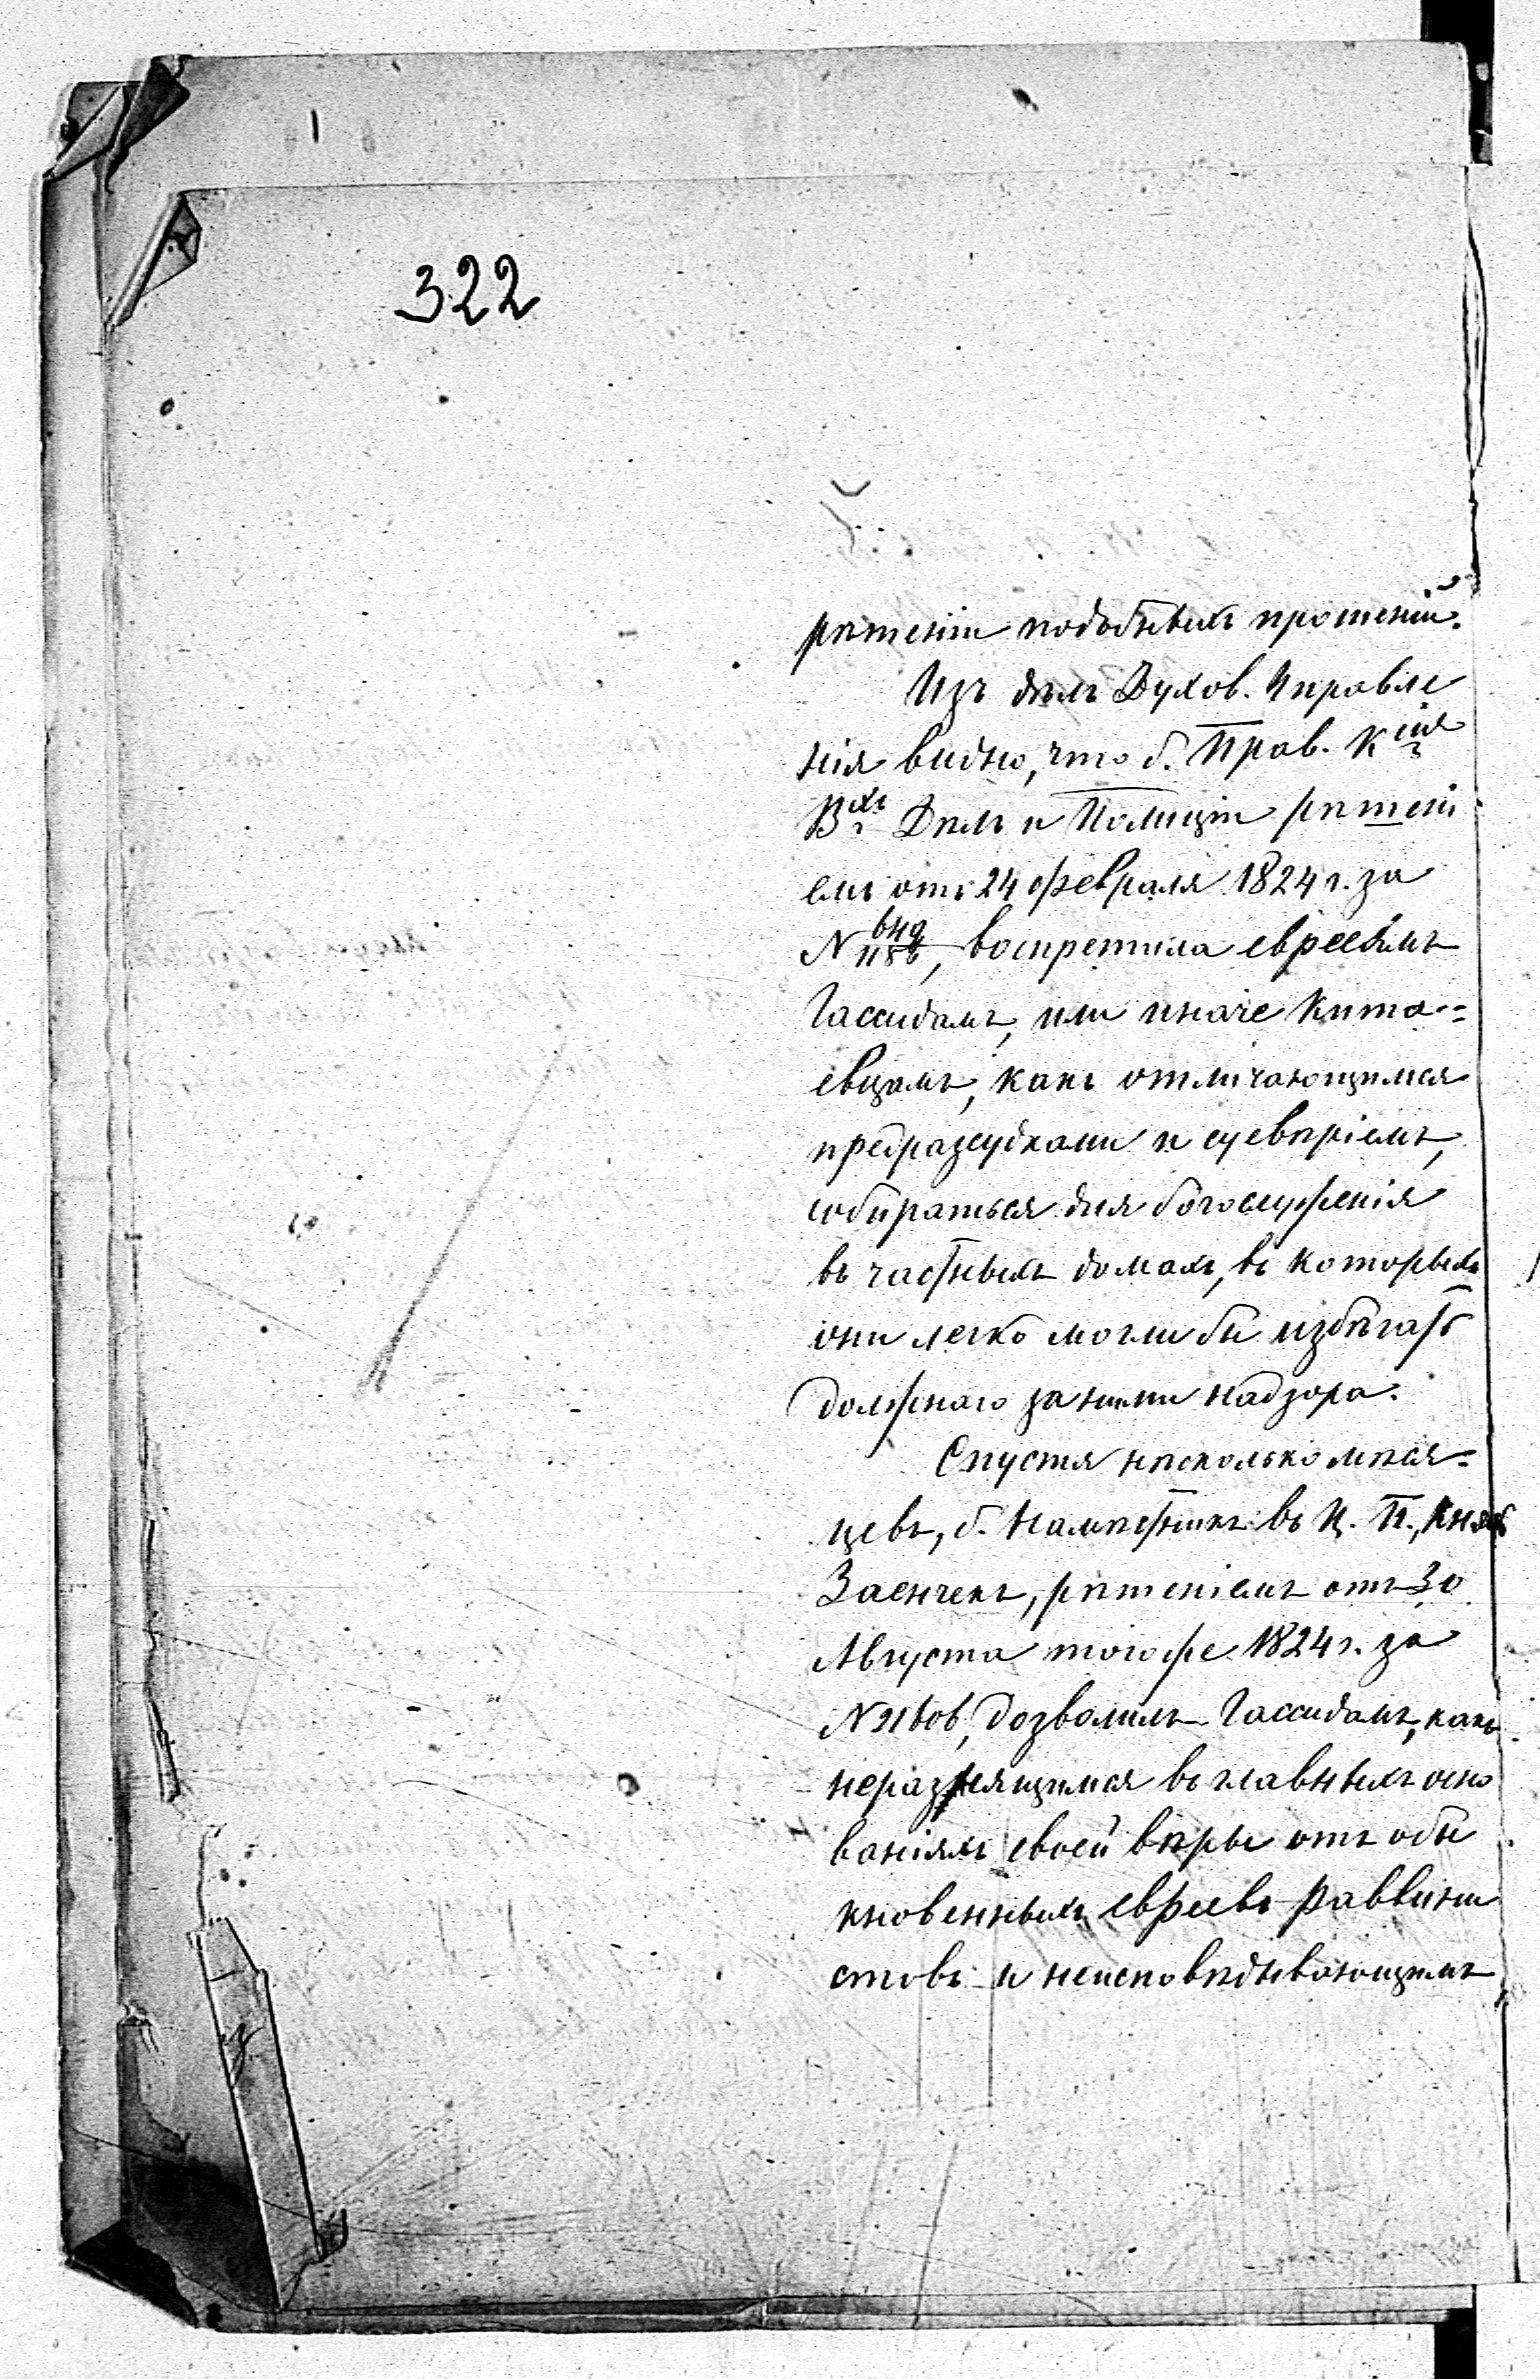 322
рѣшеніи подобныхъ прошеній.
Изъ дѣлъ Духов. Управле
нія видно, что б. Прав. Кція
Вхъ Дѣлъ и Полиціи рѣшені
емъ отъ 24 февраля 1824 г. за
N 649/1186, воспретила евреямъ
Гассидамъ, или иначе Кита=
евцамъ, какъ отличающимся
предразсудками и суевѣріемъ,
собираться для богослуженія
въ частныхъ домахъ, въ которыхъ
они легко могли бы избѣгать
должнаго за ними надзора.
Спустя нѣсколько мѣся=
цевъ, б. Намѣстникъ въ Ц. П., Князь
Заенчекъ, рѣшеніемъ отъ 30
Августа того же 1824 г. за
N 21606, дозволилъ Гассидамъ, какъ
неразнящимся въ главныхъ осно
ваніяхъ своей вѣры отъ обы
кновенныхъ евреевъ Раввини
стовъ и неисповѣдывающимъ